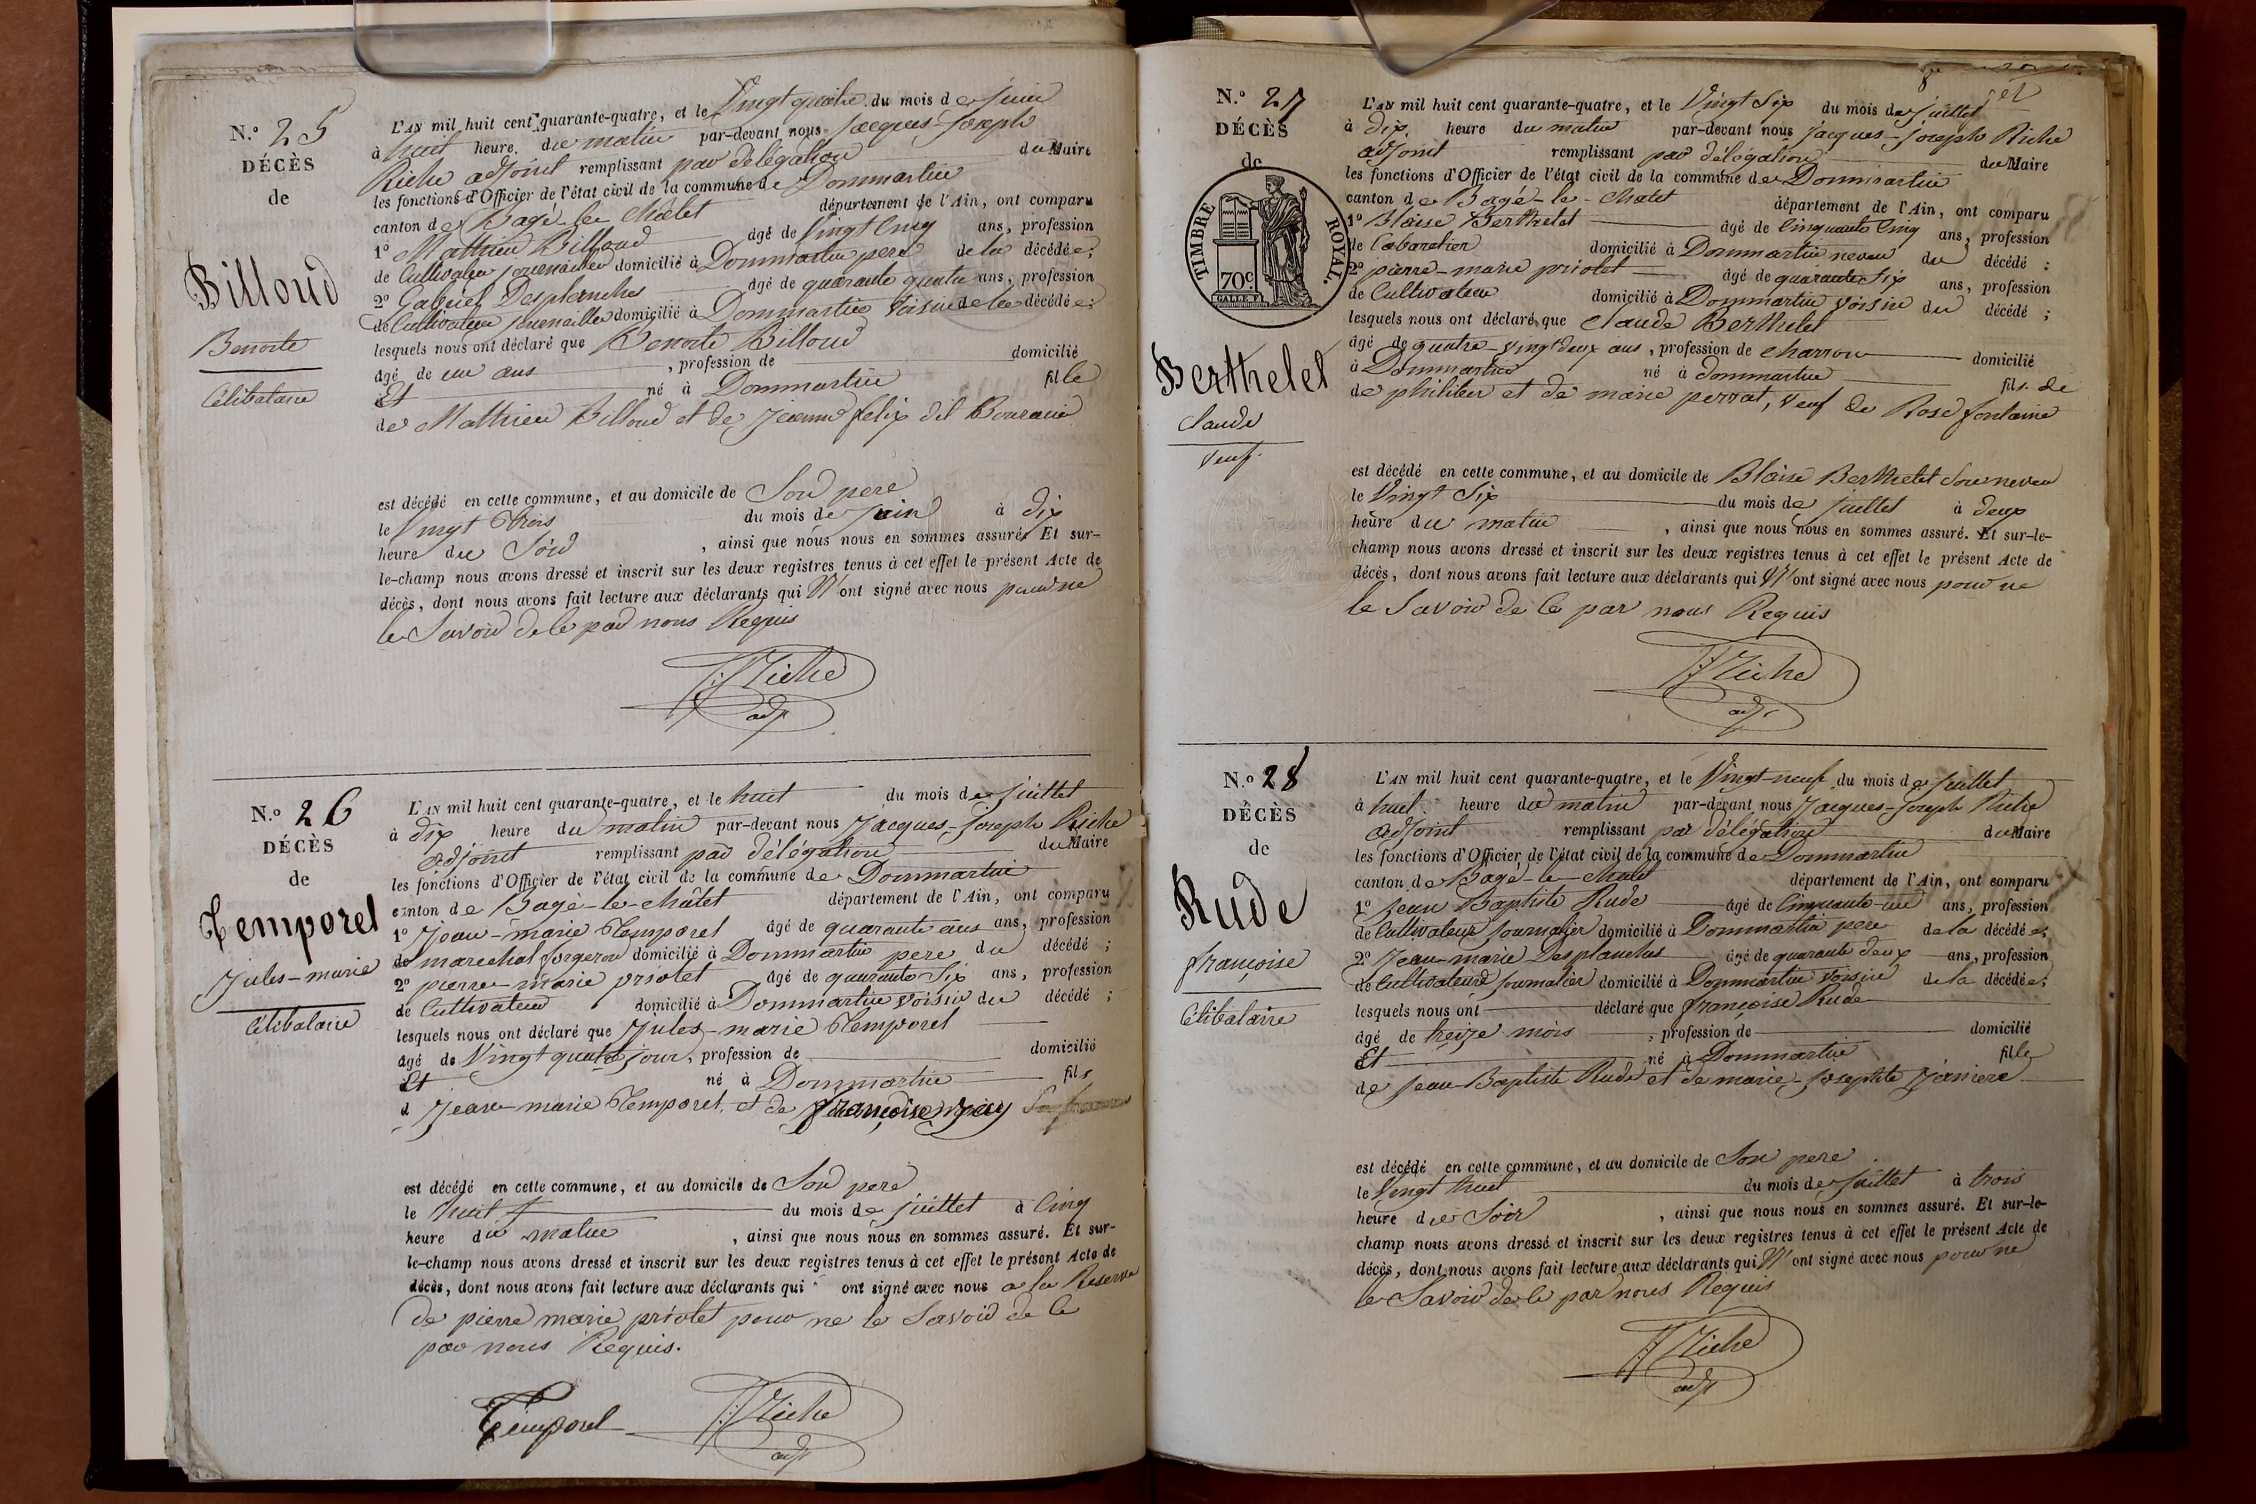 N.º 25
DÉCÈS
de
Billoud
Benoite
Célibataire
L'AN mil huit cent quarante-quatre, et le Vingt quatre du mois de juin
à huit heure du matin par-devant nous Jacques-Joseph
Riche adjoint remplissant par délégation du Maire
les fonctions d'Officier de l'état civil de la commune de Dommartin
canton de Bagé-le-Châtel département de l'Ain, ont comparu
1º Mathieu Billoud âgé de Vingt Cinq ans, profession
de Cultivateur journalier domicilié à Dommartin pere de la décédée;
2º Gabriel Desplanches âgé de quarante quatre ans, profession
de Cultivateur journallier domicilié à Dommartin Voisin de la décédée;
lesquels nous ont déclaré que Benoite Billoud
âgé de un ans , profession de domicilié
Et né à Dommartin fille
de Mathieu Billoud et de Jeanne felix dit Bourain
est décédé en cette commune, et au domicile de Son pere
le Vingt Trois du mois de Juin à dix
heure du Soir , ainsi que nous nous en sommes assuré. Et sur-
le-champ nous avons dressé et inscrit sur les deux registres tenus à cet effet le présent Acte de
décès, dont nous avons fait lecture aux déclarants qui N'ont signé avec nous pour ne
le Savoir de Ce par nous Requis
Riche
adj
N.º 26
DÉCÈS
de
Temporel
Jules-marie
Célibataire
L'AN mil huit cent quarante-quatre, et le huit du mois de juillet
à dix heure du matin par-devant nous Jacques-Joseph Riche
adjoint remplissant par délégation du Maire
les fonctions d'Officier de l'état civil de la commune de Dommartin
canton de Bagé-le-châtel département de l'Ain, ont comparu
1º Jean-marie Temporel âgé de quarante ans ans, profession
de marechal forgeron domicilié à Dommartin pere du décédé;
2º pierre-marie priolet âgé de quarante Six ans, profession
de Cultivateur domicilié à Dommartin voisin du décédé;
lesquels nous ont déclaré que Jules-marie Temporel
âgé de Vingt quatre jour, profession de domicilié
Et né à Dommartin fils
d Jean-marie Temporel, et de françoise
est décédé en cette commune, et au domicile de Son pere
le huit du mois de juillet à Cinq
heure du matin , ainsi que nous nous en sommes assuré. Et sur-
le-champ nous avons dressé et inscrit sur les deux registres tenus à cet effet le présent Acte de
décès, dont nous avons fait lecture aux déclarants qui ont signé avec nous a la Reserve
de pierre marie priolet pour ne le Savoir de Ce
par nous Requis.
Temporel Riche
adj
N.º 27
DÉCÈS
de
TIMBRE ROYAL.
70c
Berthelet
Claude
Veuf.
L'AN mil huit cent quarante-quatre, et le Vingt Six du mois de juillet
à dix heure du matin par-devant nous Jacques-Joseph Riche
adjoint remplissant par délégation du Maire
les fonctions d'Officier de l'état civil de la commune de Dommartin
canton de Bagé-le-Chatel département de l'Ain, ont comparu
1º Blaise Berthelet âgé de Cinquante Cinq ans, profession
de Cabaretier domicilié à Dommartin neveu du décédé;
2º pierre-marie priolet âgé de quarante Six ans, profession
de Cultivateur domicilié à Dommartin voisin du décédé;
lesquels nous ont déclaré que Claude Berthelet
âgé de quatre-vingt deux ans, profession de Charron domicilié
à Dommartin né à dommartin fils de
de philibert et de marie perrat, veuf de Rose fontaine
est décédé en cette commune, et au domicile de Blaise Berthelet Son neveu
le Vingt Six du mois de juillet à deux
heure du matin , ainsi que nous nous en sommes assuré. Et sur-le-
champ nous avons dressé et inscrit sur les deux registres tenus à cet effet le présent Acte de
décès, dont nous avons fait lecture aux déclarants qui N'ont signé avec nous pour ne
le Savoir de Ce par nous Requis
Riche
adj
N.º 28
DÉCÈS
de
Rude
françoise
Célibataire
L'AN mil huit cent quarante-quatre, et le Vingt-neuf du mois de juillet
à huit heure du matin par-devant nous Jacques-Joseph Riche
adjoint remplissant par délégation du Maire
les fonctions d'Officier de l'état civil de la commune de Dommartin
canton de Bagé-le-Chatel département de l'Ain, ont comparu
1º Jean Baptiste Rude âgé de Cinquante-un ans, profession
de Cultivateur journalier domicilié à Dommartin pere de la décédée;
2º Jean-marie Desplanches âgé de quarante deux ans, profession
de Cultivateur journalier domicilié à Dommartin voisin de la décédée;
lesquels nous ont déclaré que françoise Rude
âgé de treize mois , profession de domicilié
Et né à Dommartin fille
de Jean-Baptiste Rude et de marie-Josephte Janiere
est décédé en cette commune, et au domicile de Son pere
le Vingt huit du mois de juillet à trois
heure du Soir , ainsi que nous nous en sommes assuré. Et sur-le-
champ nous avons dressé et inscrit sur les deux registres tenus à cet effet le présent Acte de
décès, dont nous avons fait lecture aux déclarants qui N'ont signé avec nous pour ne
le Savoir de Ce par nous Requis
Riche
adj